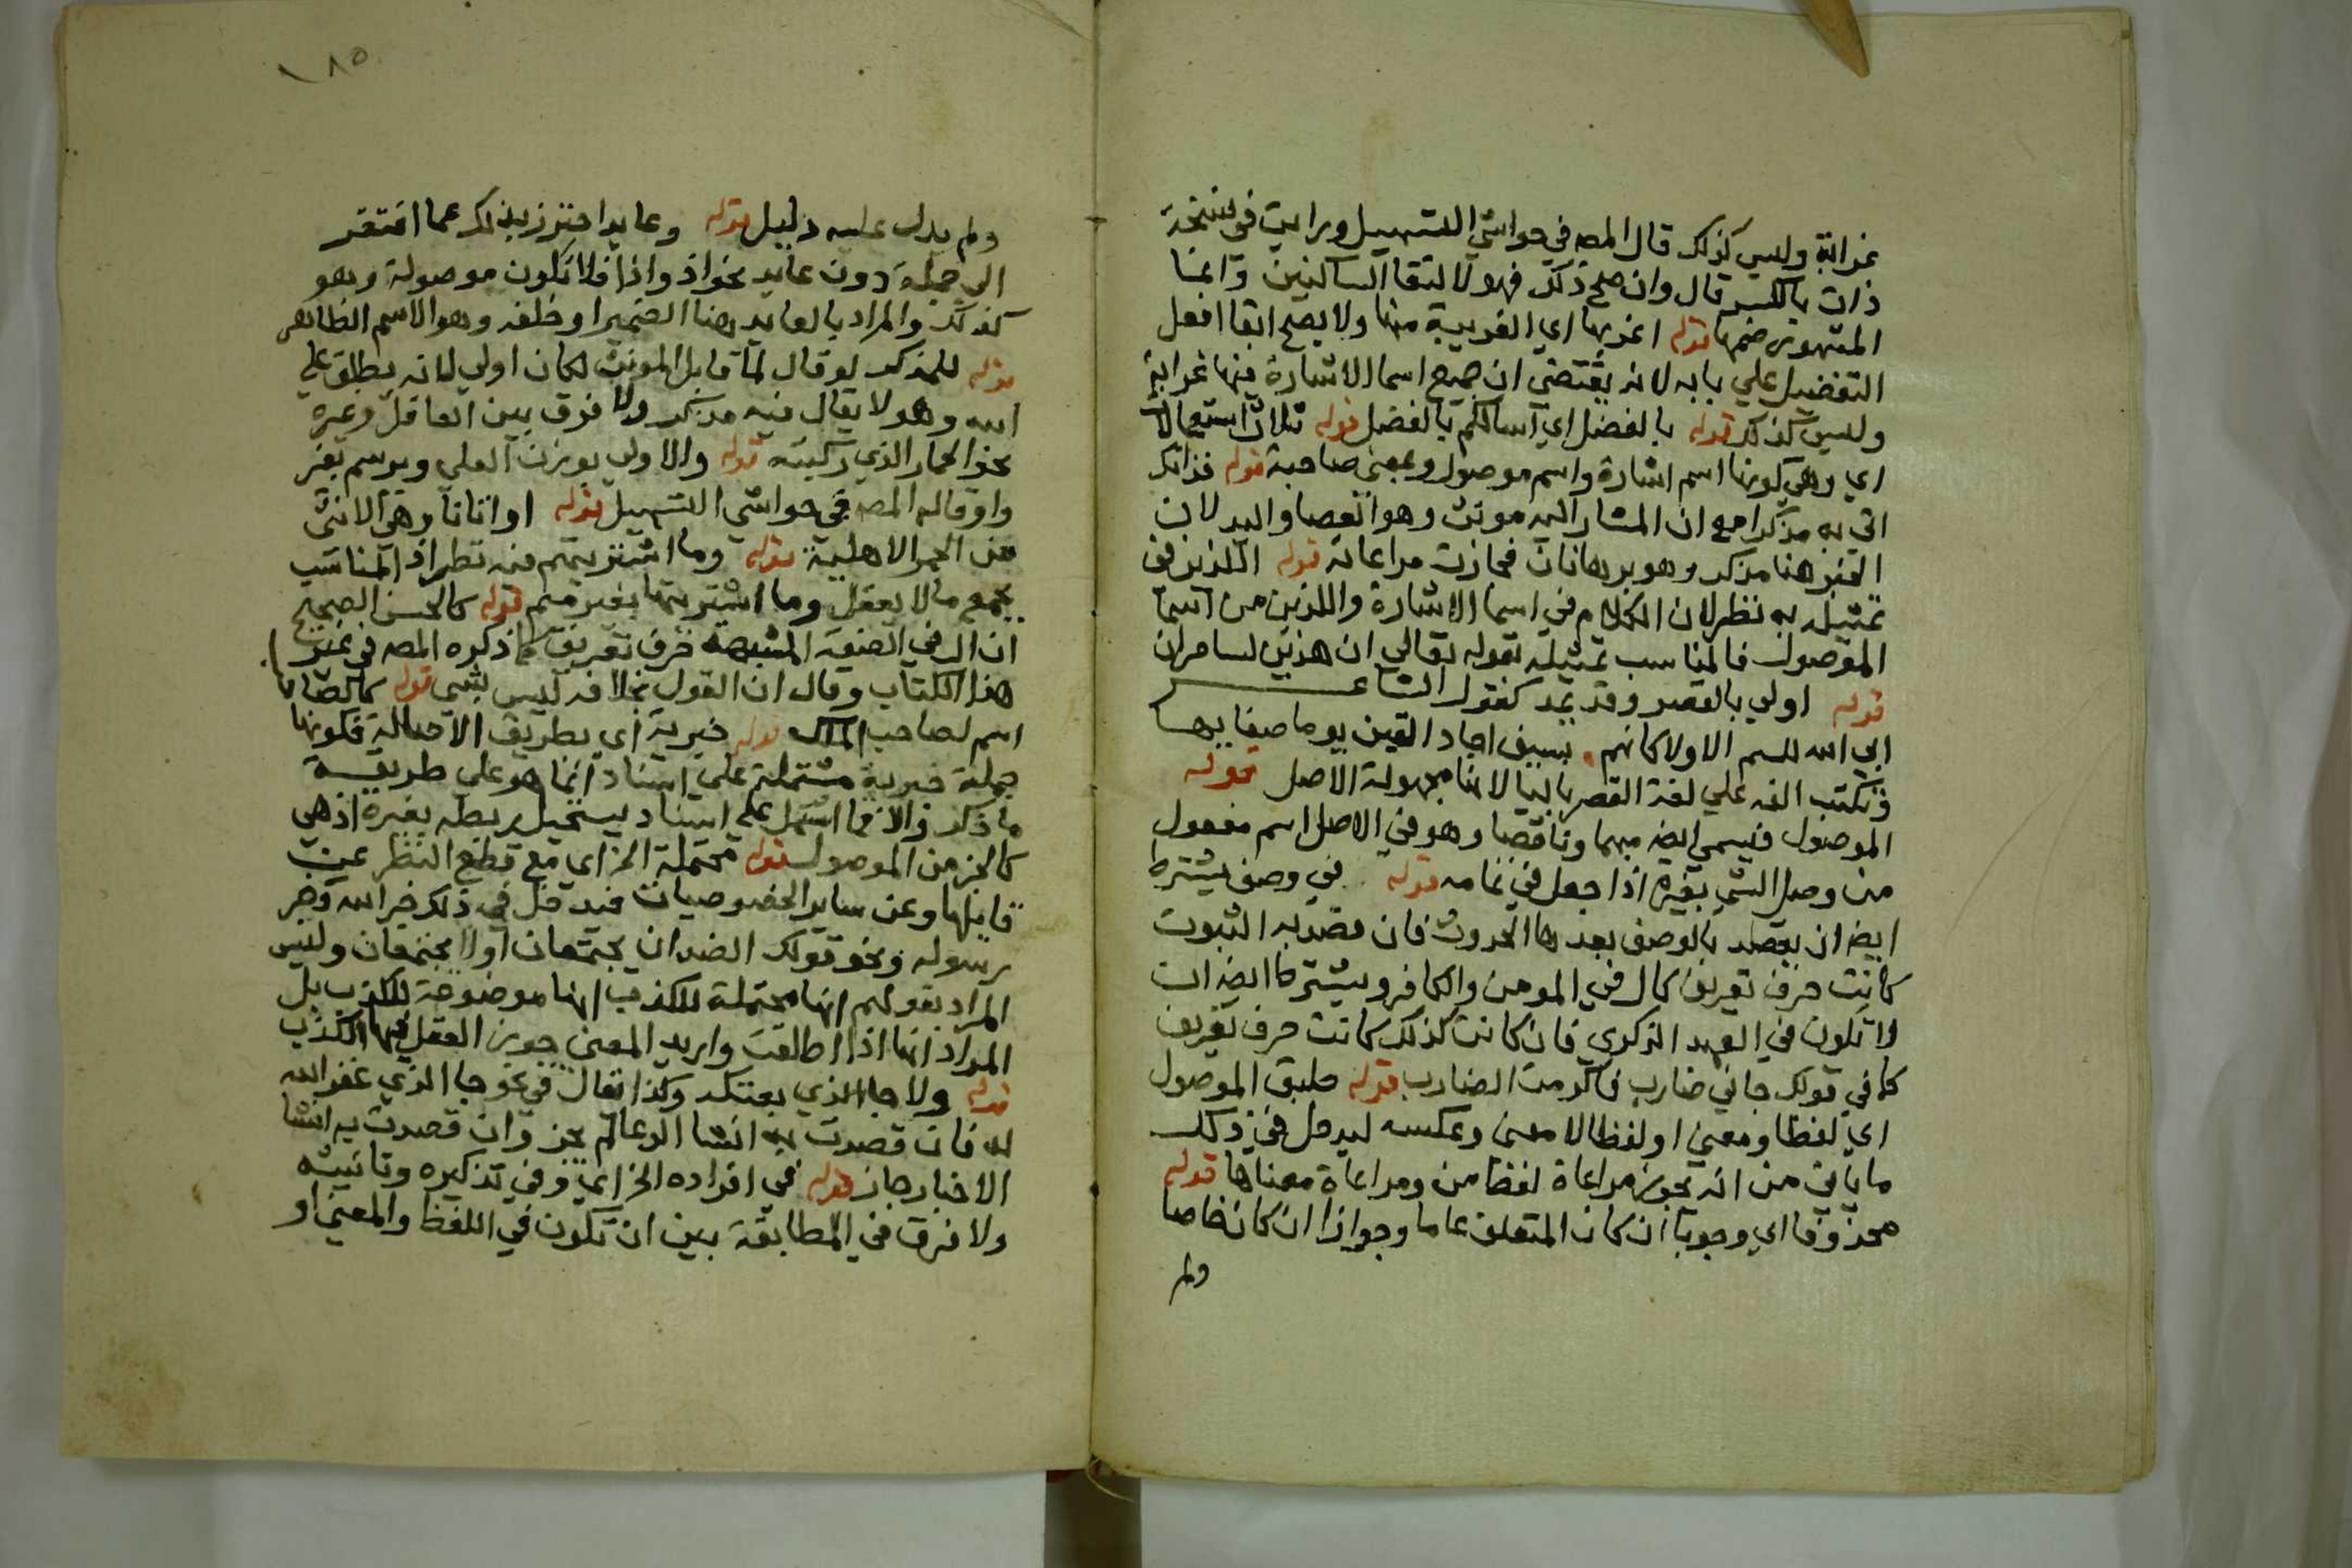 غرابة وليس كذلك قال المصه في حواشي التسهيل ورايت في نسخة
ذات بالكسر قال وان صح ذلك فهو لالتقا الساكنين وانما
المشهور ضمها قوله اغربها اي الغريبة منها ولا يصح ابقا افعل
التفضيل علي بابه لانه يقتضي ان جميع اسما الاشارة فيها غرابة
وليس كذلك قوله بالفضل اي اسالكم بالفضل قوله ثلاث استعمالات
اي وهي كونها اسم اشارة واسم موصول وبمعنى صاحبة قوله فذانك
اتى به مذكرا مع ان المشار اليه مونث وهو العصا واليد لان
الخبر هنا مذكر وهو برهانان فجازت مراعاته قوله اللذين في
تمثيله به نظر لان الكلام في اسما الاشارة واللذين من اسما
الموصول فالمناسب تمثيله بقوله تعالي ان هذين لساحران
قوله اولي بالقصر وقد يمد كقول الشاعر
ابى الله للشم الاولا كانهم سيوف اجاد القين يوما صقالها
وتكتب الفه علي لغة القصر باليا لانها مجهولة الاصل قوله
الموصول فيسمي ايضه مبهما وناقصا وهو في الاصل اسم مفعول
من وصل الشي بغيره اذا جعل في تمامه قوله في وصف يشترط
ايضه ان يقصد بالوصف بعدها الحدوث فان قصد به الثبوت
كانت حرف تعريف كال في المومن والكافر ويشترط ايضه ان
لا تكون في العهد الذكري فان كانت كذلك كانت حرف تعريف
كما في قولك جاني ضارب فاكرمت الضارب قوله طبق الموصول
اي لفظا ومعنى او لفظا لا معنى وعكسه ليدخل في ذلك
ما ياتي من انه يجوز مراعاة لفظ من ومراعاة معناها قوله
محذوفا اي وجوبا ان كان المتعلق عاما وجوازا ان كان خاصا
ولم
١٨٥
ولم يدل عليه دليل قوله وعايد احترز بذلك عما افتقر
الي جملة دون عايد نحو اذ واذا فلا تكون موصولة وهو
كذلك والمراد بالعايد هنا الضمير او خلفه وهو الاسم الظاهر
قوله للمذكر لو قال لما قابل المونث لكان اولي لانه يطلق علي
الله وهو لا يقال فيه مذكر ولا فرق بين العاقل وغيره
نحو الحمار الذي ركبته قوله والاولي بوزن العلي ويرسم بغير
واو قاله المصه في حواشي التسهيل قوله او اتانا وهي الانثى
من الحمر الاهلية قوله وما اشتريتهم فيه نظر اذ المناسب
بجمع ما لا يعقل وما اشتريتها بغير ميم قوله كالحسن الصحيح
ان ال في الصفة المشبهة حرف تعريف كما ذكره المصه في غير
هذا الكتاب وقال ان القول بخلافه ليس بشى قوله كالصاحب
اسم لصاحب الملك قوله خبرية اي بطريق الاصالة فكونها
جملة خبرية مشتملة علي اسناد انما هو علي طريقة
ما ذكر والا فما اشتمل علي اسناد يستحيل ربطه بغيره اذ هي
كالجز من الموصول قوله محتملة الخ اي مع قطع النظر عن
قايلها وعن ساير الخصوصيات فيدخل في ذلك خبر الله وخبر
رسوله ونحو قولك الضدان يجتمعان او لا يجتمعان وليس
المراد بقولهم انها محتملة للكذب انها موضوعة للكذب بل
المراد انها اذا اطلقت واريد المعنى جوز العقل فيها الكذب
قوله ولا جا الذي بعتكه وكذا يقال في نحو جا الذي غفر الله
له فان قصدت به انشا الدعا لم يجز وان قصدت به انشا
الاخبار جاز قوله في افراده الخ اي وفي تذكيره وتانيثه
ولا فرق في المطابقة بين ان تكون في اللفظ والمعنى او